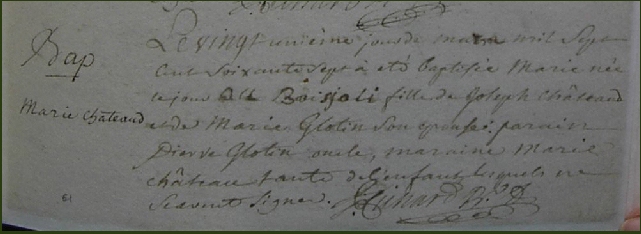 Bap
Marie Chateaud
Le vingt unième jour de mars mil Sept
Cent Soixante Sept à eté baptisée Marie née
le jour Boisjoli fille de Joseph Château
et de Marie Glotin Son epouse; parain
Pierre Glotin oncle, maraine Marie
château tante de l'enfant lesquels ne
Scavent Signé.
61